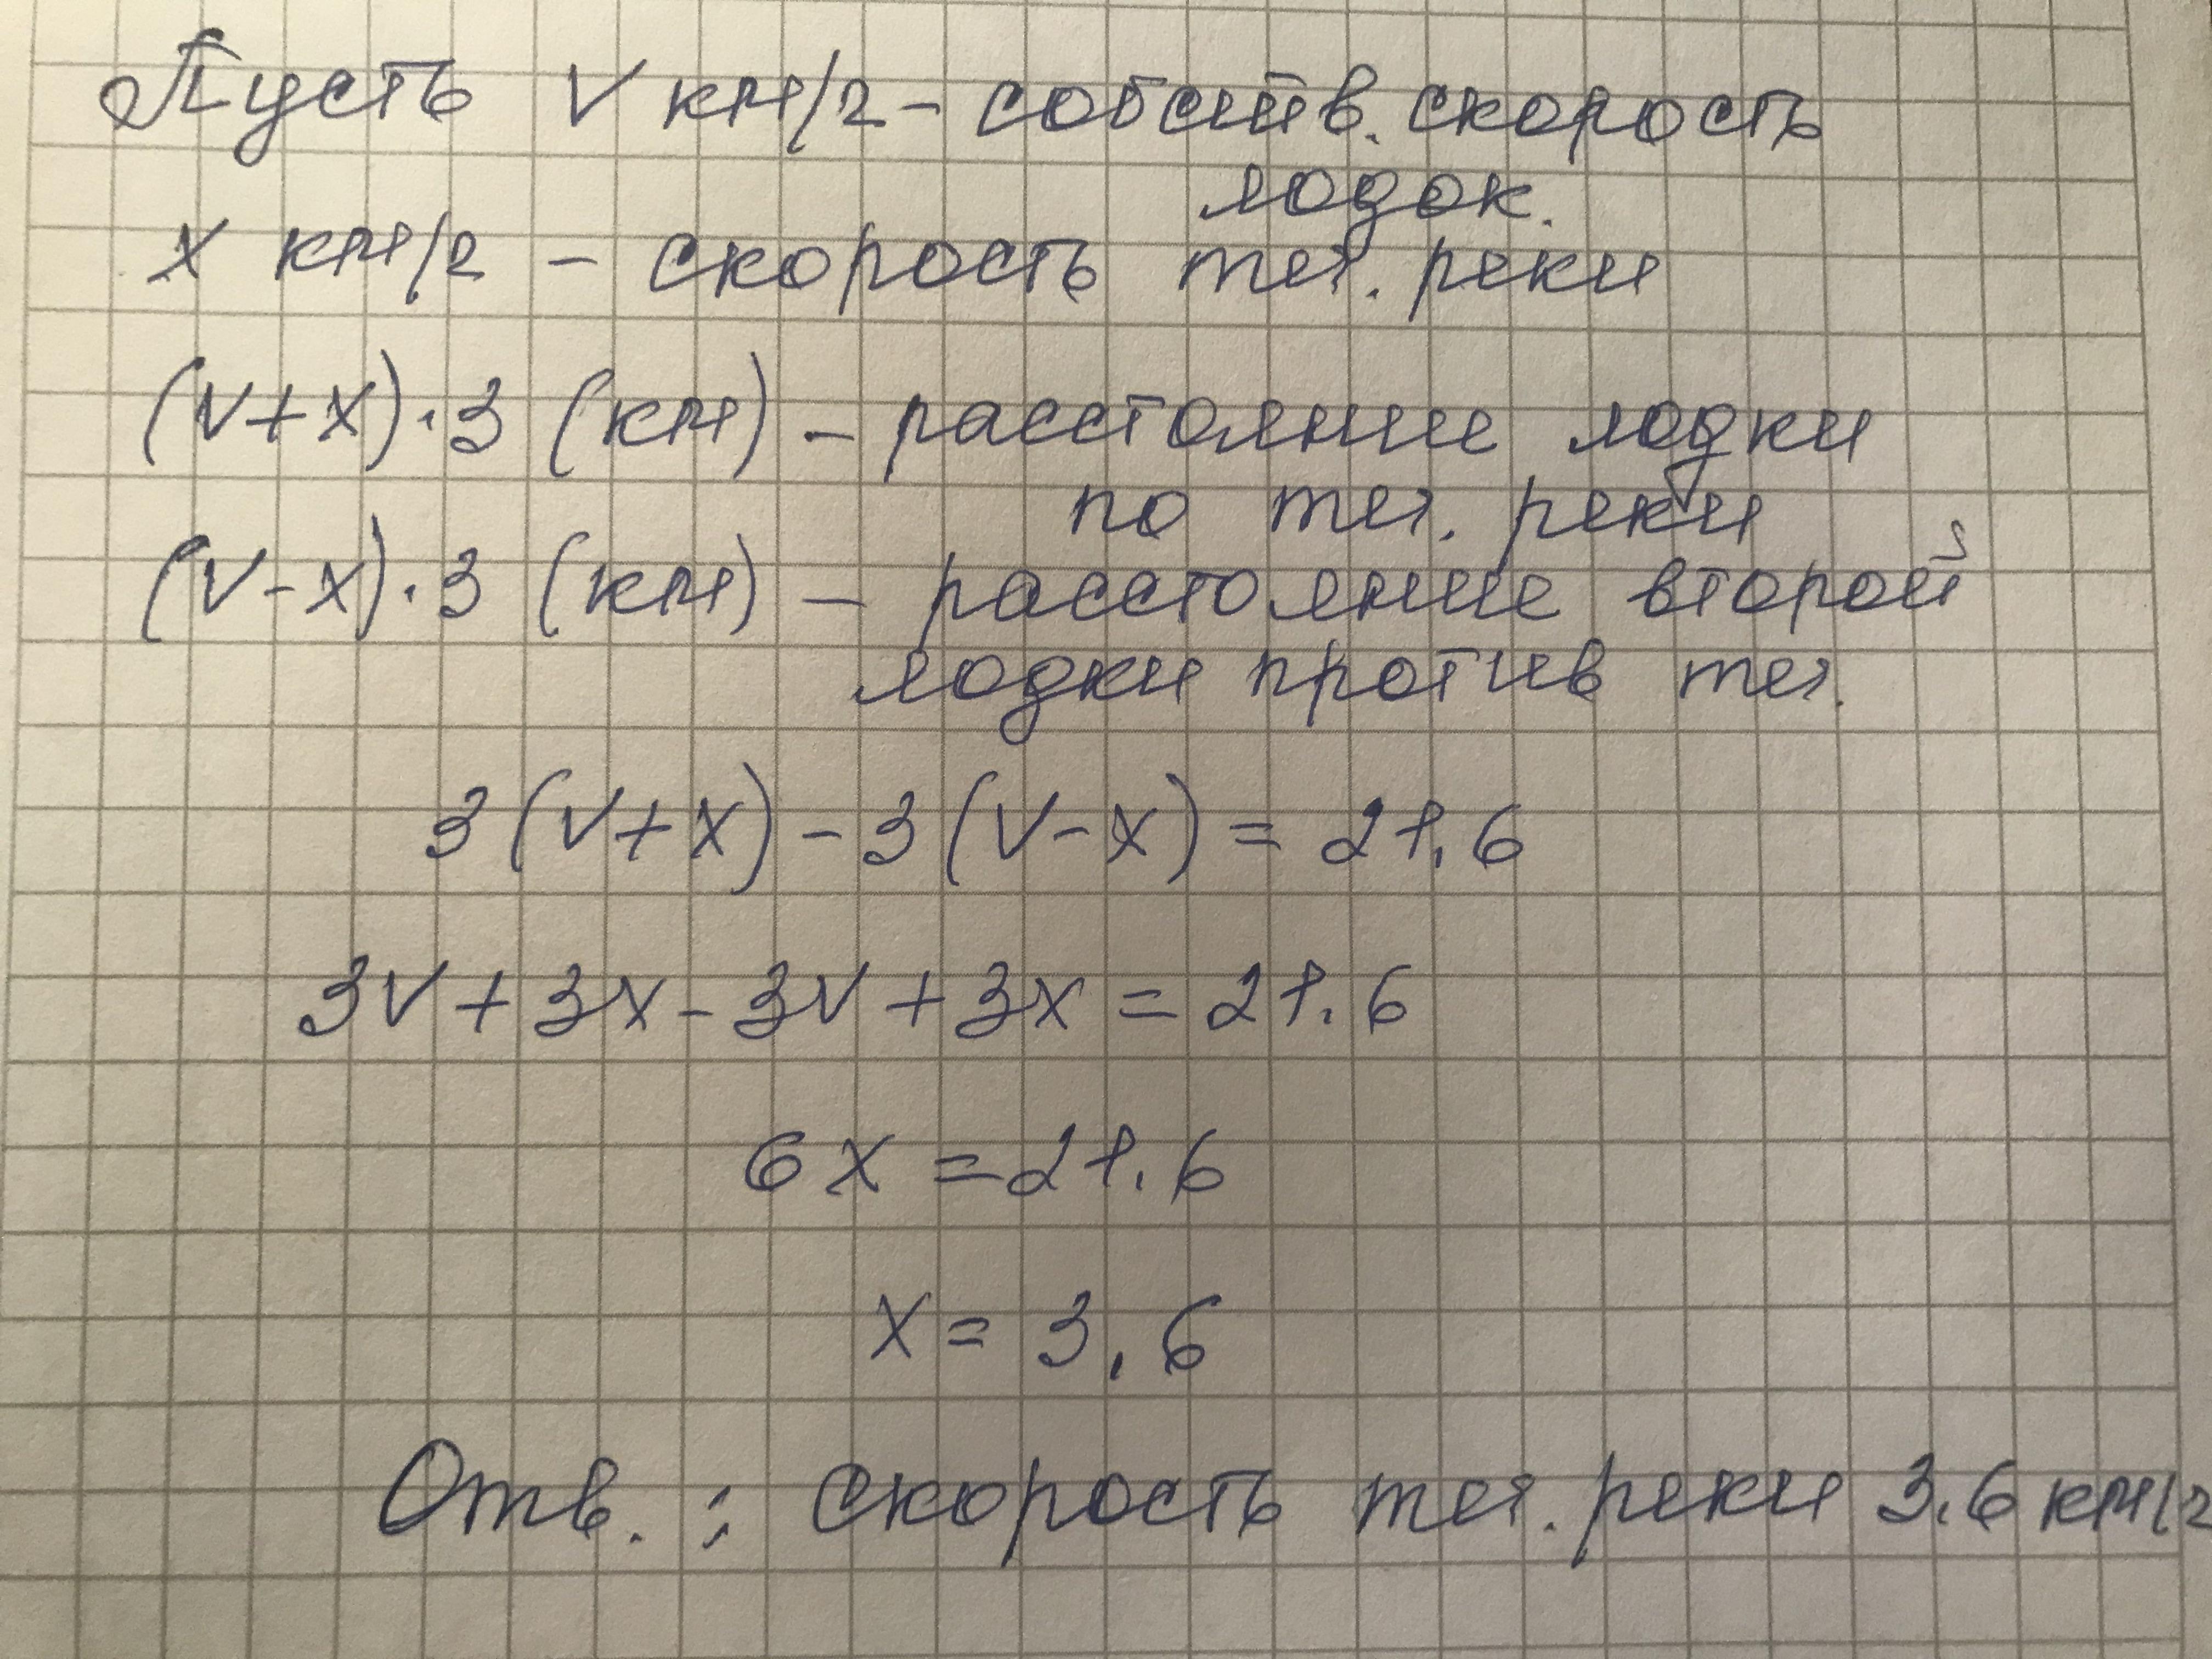 Пусть V км/г - собств. скорость
лодок.
x км/г - скорость теч. реки
(v+x)·3 (км) - расстояние лодки
по теч. реки
(v-x)·3 (км) - расстояние второй
лодки против теч.
3(v+x)-3(v-x)=21,6
3v+3x-3v+3x=21.6
6x=21.6
x=3,6
Отв.: скорость теч. реки 3.6 км/г